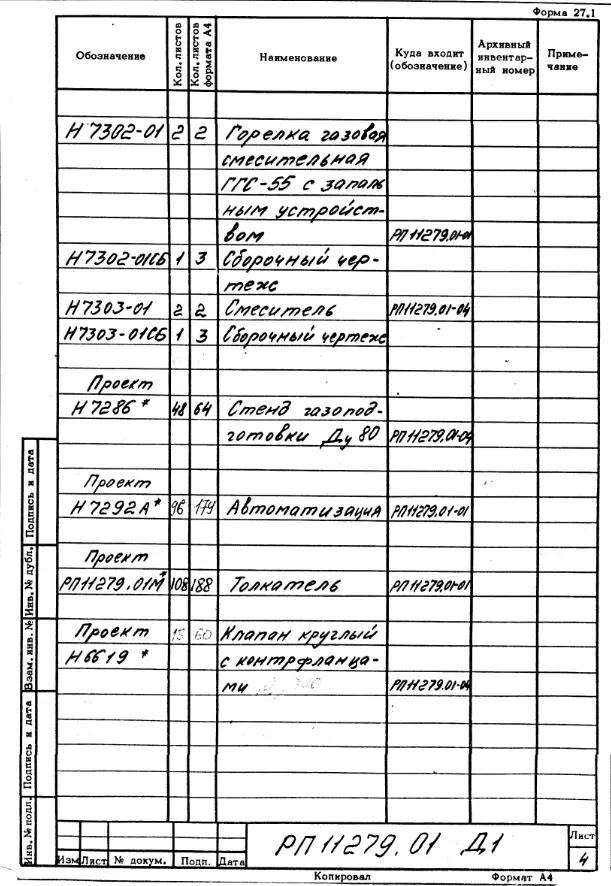 Форма 27.1
Обозначение | Кол. листов | Кол. листов формата А4 | Наименование | Куда входит (обозначение) | Архивный инвентарный номер | Примечание
Н7302-01 2 2 Горелка газовая
смесительная
ГГС-55 с запаль
ным устройст-
вом РП11279.01-01
Н7302-01СБ 1 3 Сборочный чер-
теж
Н7303-01 2 2 Смеситель РП11279.01-04
Н7303-01СБ 1 3 Сборочный чертеж
Проект
Н7286* 48 64 Стенд газопод-
готовки Ду 80 РП11279.01-04
Проект
Н7292А* 96 174 Автоматизация РП11279.01-01
Проект
РП11279.01М* 108 188 Толкатель РП11279.01-01
Проект 15 60 Клапан круглый
Н6619* с контрфланца-
ми РП11279.01-04
Инв. № подл. Подпись и дата Взам. инв. № Инв. № дубл. Подпись и дата
РП11279.01 Д1
Лист
4
Изм Лист № докум. Подп. Дата
Копировал Формат А4